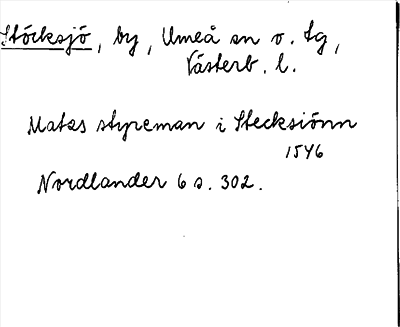 Stöcksjö, by, Umeå sn o. tg,
Västerb. l.
Matss styreman i Stecksiönn
1546
Nordlander 6 s. 302.